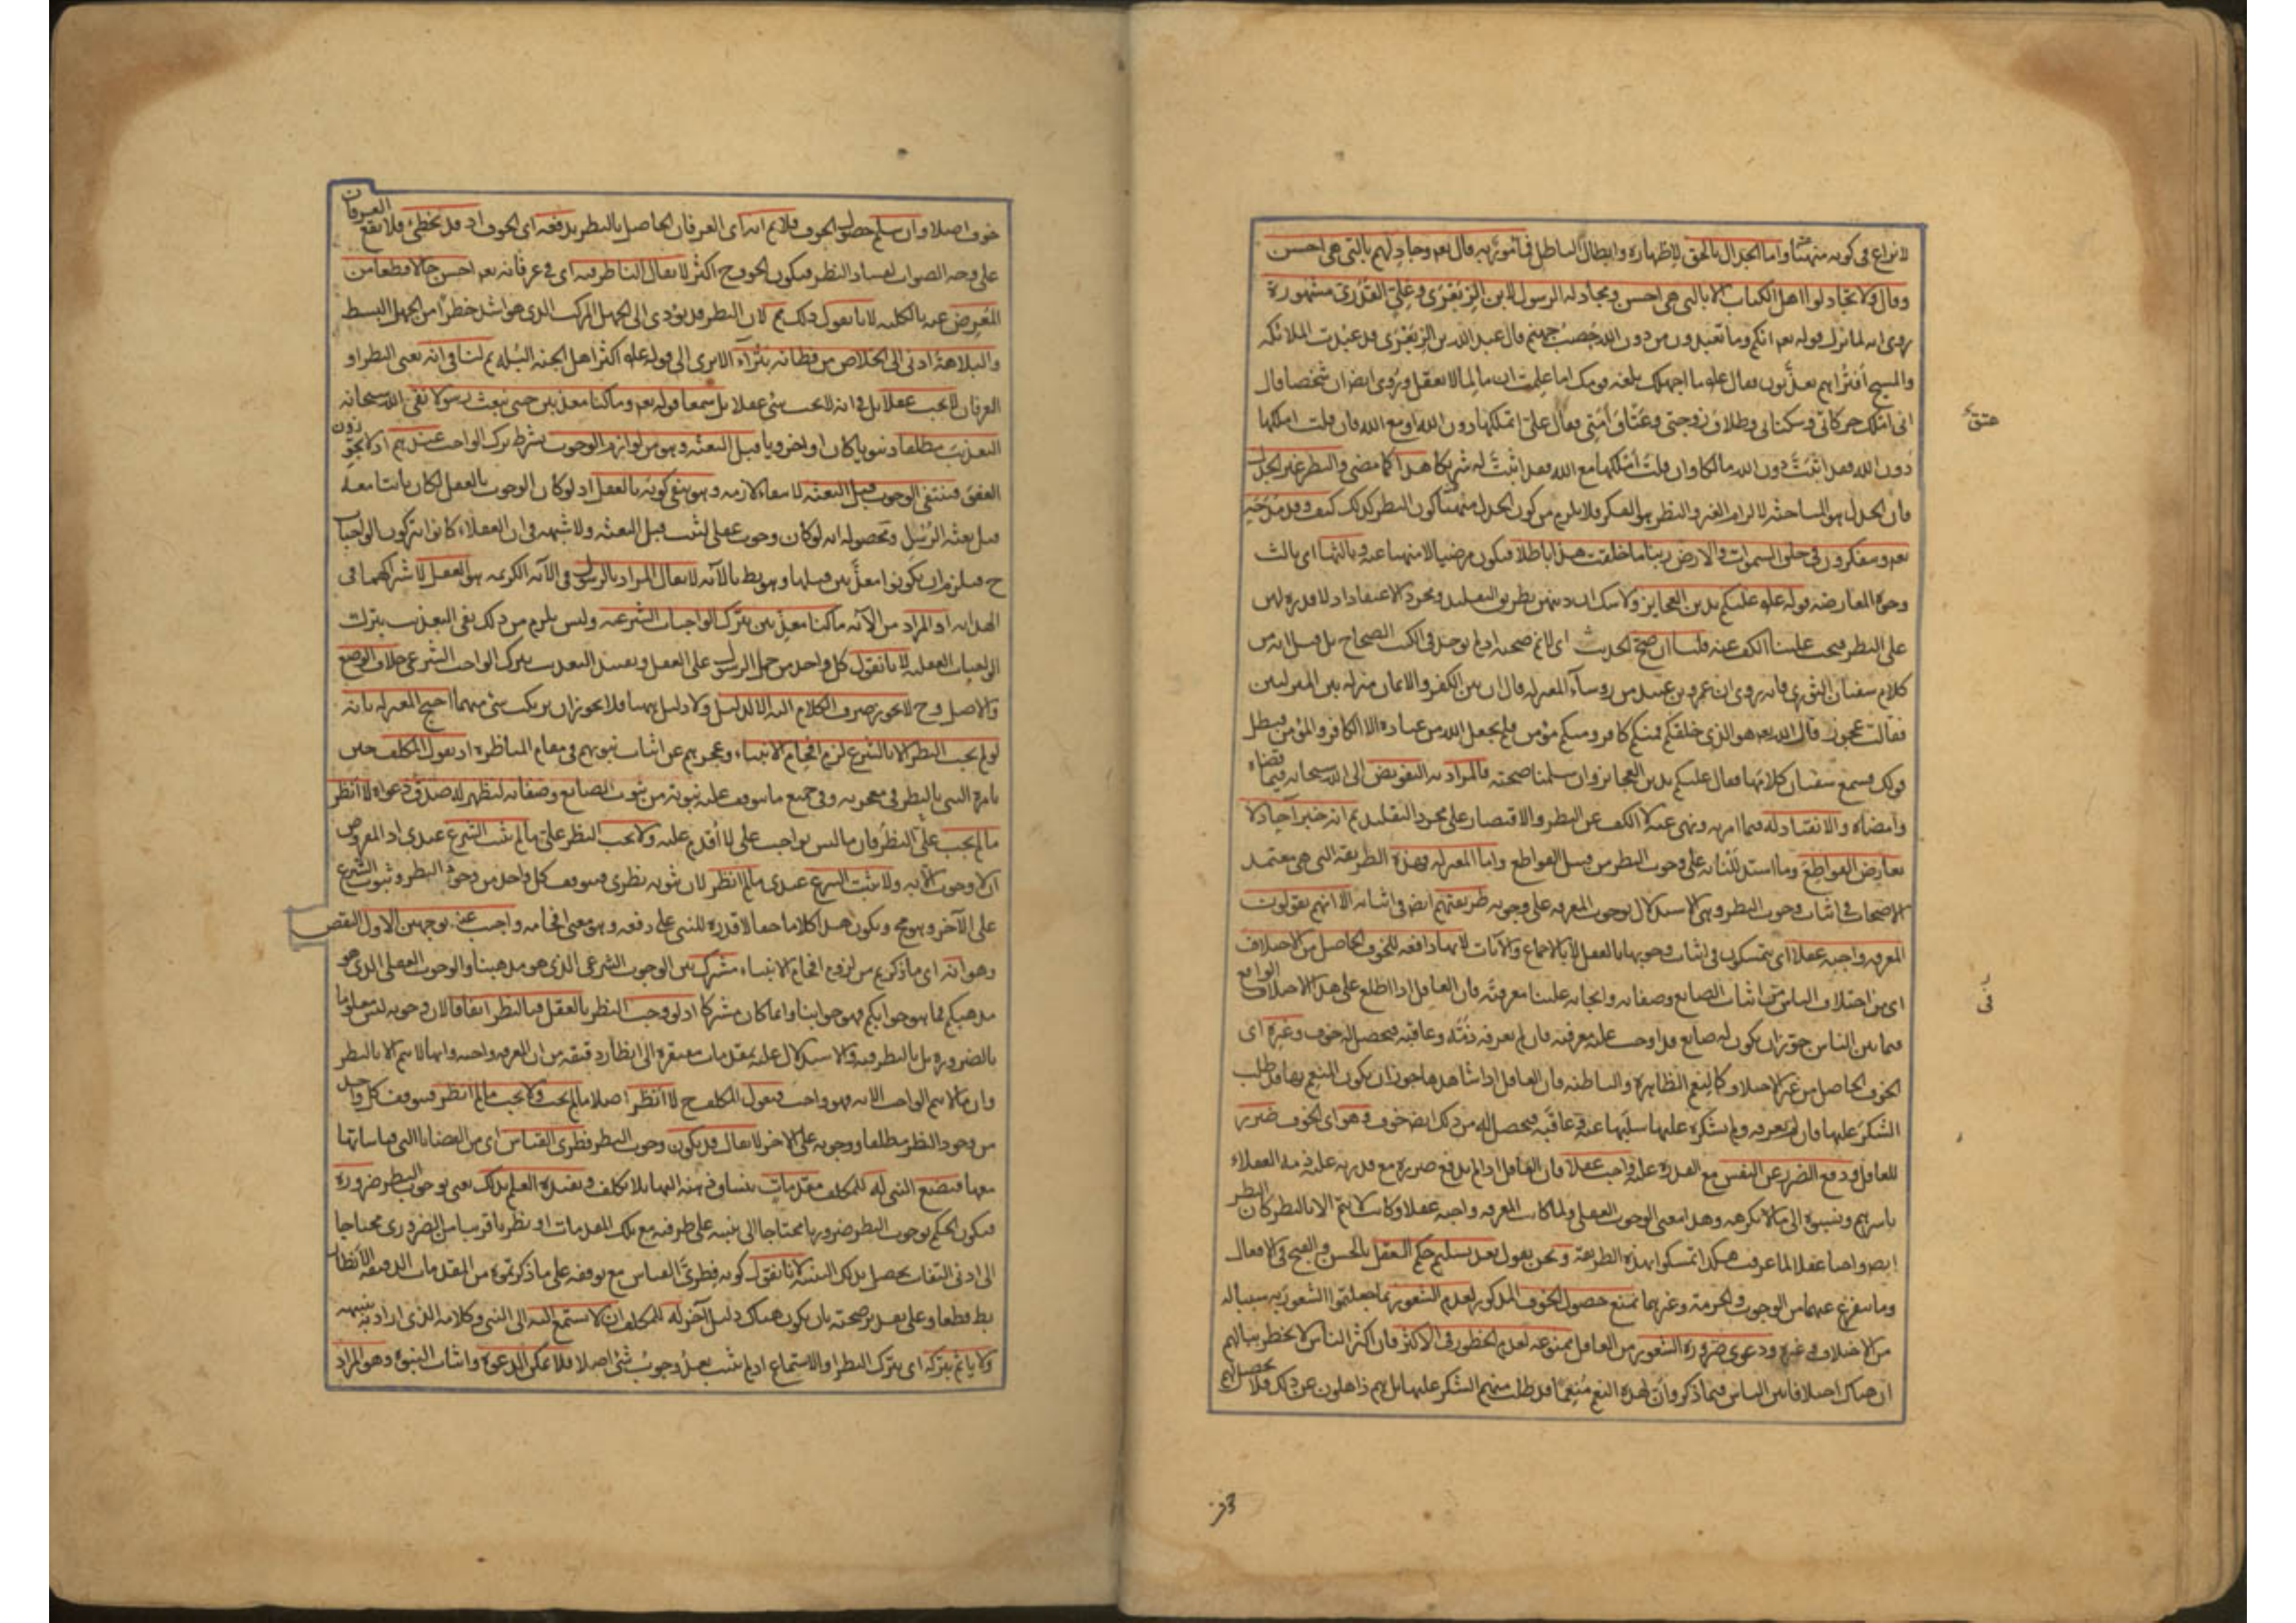 لا نزاع فى كونه منهيا واما الجدال بالحق لاظهاره وابطال الباطل فمأمور به قال تعم وجادلهم بالتى هى احسن
وقال ولا تجادلوا اهل الكتاب الا بالتى هى احسن ومجادلة الرسول لابن الزبعرى وعلى القدرى مشهورة
روى انه لما نزل قوله تعم انكم وما تعبدون من دون الله حصب جهنم قال عبد الله بن الزبعرى قد عبدت الملائكة
والمسيح افتراهم يعذبون فقال علم ما اجهلك بلغة قومك اما علمت ان ما لما لا يعقل وروى ايضا ان شخصا قال
انى املك حركاتى وسكناتى وطلاق زوجتى وعتاق امتى فقال على اتملكها دون الله او مع الله فان قلت املكها
دون الله فقد اثبت دون الله مالكا وان قلت املكها مع الله فقد اثبت له شريكا هذا كما مضى والنظر غير الجدل
فان الجدل هو المباحثة لالزام الغير والنظر هو الفكر فلا يلزم من كون الجدل منهيا كون النظر كذلك كيف وقد مدحه
تعم ويتفكرون فى خلق السموات والارض ربنا ما خلقت هذا باطلا فيكون مرضيا لا منهيا عنه وثالثها اى ثالث
وجوه المعارضة قوله علم عليكم بدين العجايز ولا شك ان دينهن بطريق التقليد ومجرد الاعتقاد اذ لا قدرة لهن
على النظر فيجب علينا الكف عنه قلنا ان صح الحديث اى لا نم صحته اذ لم يوجد فى الكتب الصحاح بل قيل انه من
كلام سفيان الثورى فانه روى ان عمرو بن عبيد من روساء المعتزلة قال ان بين الكفر والايمان منزلة بين المنزلتين
فقالت عجوز قال الله تعم هو الذى خلقكم فمنكم كافر ومنكم مؤمن فلم يجعل الله من عباده الا الكافر والمؤمن فبطل
قولك فسمع سفيان كلامها فقال عليكم بدين العجايز وان سلمنا صحته فالمراد به التفويض الى الله سبحانه فيما قضاه
وامضاه والانقياد له فيما امر به ونهى عنه لا الكف عن النظر والاقتصار على مجرد التقليد ثم انه خبر آحاد لا
يعارض القواطع وما استدللنا به على وجوب النظر من قبيل القواطع واما المعتزلة فهذه الطريقة التى هى معتمد
الاصحاب فى اثبات وجوب النظر وهى الاستدلال بوجوب المعرفة على وجوبه طريقتهم ايضا فى اثباته الا انهم يقولون
المعرفة واجبة عقلا اى يتمسكون فى اثبات وجوبها بالعقل لا بالاجماع والآيات لانها دافعة للخوف الحاصل من الاختلاف
اى من اختلاف الناس فى اثبات الصانع وصفاته وايجابه علينا معرفته فان العاقل اذا اطلع على هذا الاختلاف الواقع
فيما بين الناس جوز ان يكون له صانع قد اوجب عليه معرفته فان لم يعرفه ذمه وعاقبه فيحصل له خوف وغيره اى
الخوف الحاصل من غير الاختلاف كالنعم الظاهرة والباطنة فان العاقل اذا شاهدها جوز ان يكون المنعم بها قد طلب
الشكر عليها فان لم يعرفه ولم يشكره عليها سلبها عنه وعاقبه فيحصل له من ذلك ايضا خوف وهو اى الخوف ضرر
للعاقل ودفع الضرر عن النفس مع القدرة عليه واجب عقلا فان العاقل اذا لم يدفع ضرره مع قدرته عليه ذمه العقلاء
باسرهم ونسبوه الى ما لا يكرهه وهذا معنى الوجوب العقلى ولما كانت المعرفة واجبة عقلا وكانت لا تتم الا بالنظر كان النظر
ايضا واجبا عقلا لما عرفت هكذا تمسكوا بهذه الطريقة ونحن نقول بعد تسليم حكم العقل بالحسن والقبح فى الافعال
وما يتفرع عنهما من الوجوب والحرمة وغيرهما نمنع حصول الخوف المذكور لعدم الشعور بما جعلتموا الشعور به سببا له
من الاختلاف وغيره ودعوى ضرورة الشعور من العاقل ممنوعة لعدم الخطور فى الاكثر فان اكثر الناس لا يخطر ببالهم
ان هناك اختلافا بين الناس فيما ذكر وان لهذه النعم منعما قد طلب منهم الشكر عليها بل هم ذاهلون عن ذلك فلا يحصل لهم
خوف اصلا وان سلم حصول الخوف فلا نم انه اى العرفان الحاصل بالنظر يدفعه اى الخوف اذ قد يخطئ فلا يقع العرفان
على وجه الصواب لفساد النظر فيكون الخوف ح اكثر لا يقال الناظر فيه اى فى عرفانه تعم احسن حالا قطعا من
المعرض عنه بالكلية لانا نقول ذلك مم لان النظر قد يؤدى الى الجهل المركب الذى هو اشد خطرا من الجهل البسيط
والبلاهة ادنى الى الخلاص من فطانة بتراء الا يرى الى قوله علم اكثر اهل الجنة البله ثم لنا فى انه يعنى النظر او
العرفان لا يجب عقلا بل فى انه لا يجب شئ عقلا بل سمعا قوله تعم وما كنا معذبين حتى نبعث رسولا نفى الله سبحانه
التعذيب مطلقا دنيويا كان او اخرويا قبل البعثة وهو من لوازم الوجوب بشرط ترك الواجب عندهم اذ لا يجوزون
العفو فينتفى الوجوب قبل البعثة لانتفاء لازمه وهو ينفى كونه بالعقل اذ لو كان الوجوب بالعقل لكان ثابتا معه
قبل بعثة الرسل ومحصوله انه لو كان وجوب عقلى لثبت قبل البعثة ولا شبهة فى ان العقلاء كانوا يتركون الواجبات
ح فيلزم ان يكونوا معذبين قبلها وهو بط بالآية لا يقال المراد بالرسول فى الآية الكريمة هو العقل لاشتراكهما فى
الهداية او المراد من الآية ما كنا معذبين بترك الواجبات الشرعية وليس يلزم من ذلك نفى التعذيب بترك
الواجبات العقلية لانا نقول كل واحد من حمل الرسول على العقل وتقييد التعذيب بترك الواجب الشرعى خلاف الوضع
والاصل وح لا يجوز صرف الكلام اليه الا لدليل ولا دليل ههنا فلا يجوز ان يرتكب شئ منهما احتج المعتزلة بانه
لو لم يجب النظر الا بالشرع لزم افحام الانبياء وعجزهم عن اثبات نبوتهم فى مقام المناظرة اذ يقول المكلف حين
يامره النبى بالنظر فى معجزته وفى جميع ما يتوقف عليه نبوته من ثبوت الصانع وصفاته ليظهر له صدق دعواه لا انظر
ما لم يجب على النظر فان ما ليس بواجب على لا اقدم عليه ولا يجب النظر على ما لم يثبت الشرع عندى اذ المفروض
ان لا وجوب الا به ولا يثبت الشرع عندى ما لم انظر لان ثبوته نظرى فيتوقف كل واحد من وجوب النظر وثبوت الشرع
على الآخر وهو مح ويكون هذا كلاما حقا لا قدرة للنبى على دفعه وهو معنى افحامه واجيب عنه بوجهين الاول النقض
وهو انه اى ما ذكرتم من لزوم افحام الانبياء مشترك بين الوجوب الشرعى الذى هو مذهبنا والوجوب العقلى الذى هو
مذهبكم فما هو جوابكم فهو جوابنا وانما كان مشتركا اذ لو وجب النظر بالعقل فبالنظر اتفاقا لان وجوبه ليس معلوما
بالضرورة بل بالنظر فيه والاستدلال عليه بمقدمات مفتقرة الى انظار دقيقة من ان المعرفة واجبة وانها لا تتم الا بالنظر
وان ما لا يتم الواجب الا به فهو واجب فيقول المكلف ح لا انظر اصلا ما لم يجب ولا يجب ما لم انظر فيتوقف كل واحد
من وجود النظر مطلقا ووجوبه على الاخر لا يقال قد يكون وجوب النظر فطرى القياس اى من القضايا التى قياساتها
معها فيضع النبى له للمكلف مقدمات ينساق ذهنه اليها بلا تكلف وتفيده العلم بذلك يعنى بوجوب النظر ضرورة
فيكون الحكم بوجوب النظر ضروريا محتاجا الى تنبيه على طرفيه مع تلك المقدمات او نظريا قريبا من الضرورى محتاجا
الى ادنى التفات يحصل بذلك التنبيه لانا نقول كونه فطرى القياس مع توقفه على ما ذكرتموه من المقدمات الدقيقة الانظار
بط قطعا وعلى تقدير صحته بان يكون هناك دليل آخر له للمكلف ان لا يستمع اليه الى النبى وكلامه الذى اراد به تنبيهه
ولا ياثم بتركه اى بترك النظر او الاستماع اذ لم يثبت بعد وجوب شئ اصلا فلا يمكن الدعوة واثبات النبوة وهو المراد